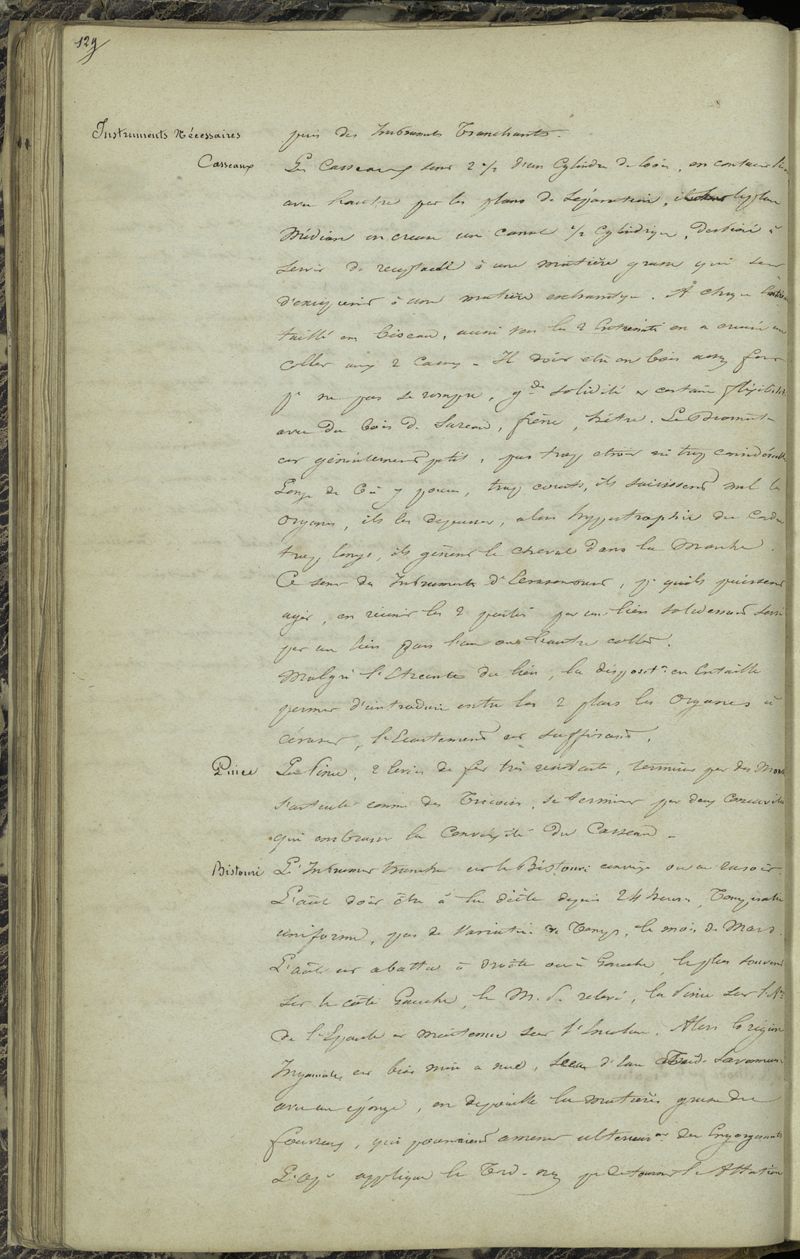 129
Instruments Nécessaires
puis des Instruments Tranchants.
Casseaux
Les Casseaux sont 2 ½ d'un Cylindre de bois, en contact l'un
avec l'autre par les plans de Séparation, le plan
Médian on creuse un canal ½ Cylindrique, destiné à
servir de receptacle à une matière grasse qui sert
d'excipient à une matière escharotique. À chaque
taillé en biseau, aussi sur les 2 Extrémités on a creusé un
collet aux 2 Casseaux. Il doit être en bois assez fort
pr ne pas se rompre, gde solidité et certaine flexibilité
avec du bois de Sureau, frêne, hêtre. Le Diamètre
est généralement petit, pas trop étroit ni trop considérable
Long de 6 à 7 pouces, trop courts, ils saisissent mal les
organes, ils les dépassent, alors hypertrophie du Cordon
trop longs, ils gênent le cheval dans la Marche.
Ce sont des Instruments d'Ecrasement, pr qu'ils puissent
agir, on réunit les 2 parties par un lien
par un lien dans l'un ou l'autre collet.
Malgré l'Étreinte du lien, la disposition en Entaille
permet d'introduire entre les 2 plans les Organes à
écraser, l'Ecartement est suffisant.
Pince
La Pince, 2 leviers de fer très résistants, terminés par des Mors
s'articule comme des Tricoises, se termine par deux Concavités
qui embrassent la Convexité du Casseau.
Bistouri
L'Instrument tranchant est le Bistouri convexe ou un rasoir.
L'aal doit être à la diète depuis 24 heures, Température
uniforme, pas de Variation de Temps, le mois de Mars.
L'aal est abattu à droite ou à Gauche, le plus souvent
sur le côté Gauche, le M. P. relevé, la
de l'Epaule et maintenu sur l'Encolure. Alors la région
Inguinale est bien mise à nue, d'Eau Savonneuse
avec une éponge, on dépouille les matières grasses du
fourreau, qui pourraient amener ultérieurement des Engorgements
L'opr applique le Tord-nez pr détourner l'Attention